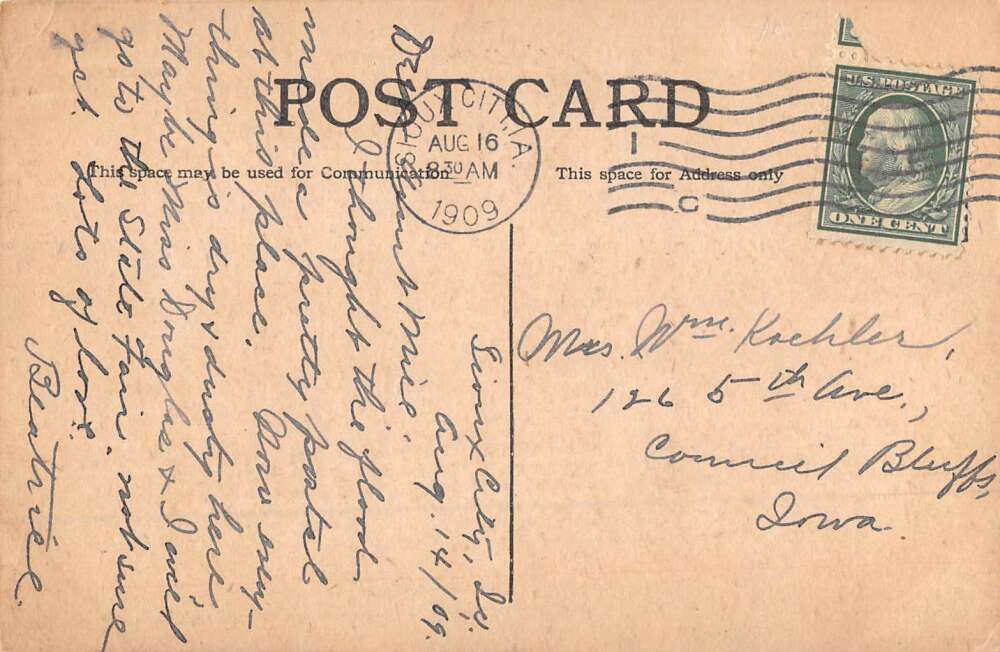 POST CARD
This space may be used for Communication
This space for Address only
SIOUX CITY, IA.
AUG 16
8 30 AM
1909
1
C
U.S. POSTAGE
ONE CENT
Sioux City, Ia.
Aug. 14/09.
Dear Aunt
I thought the flood
made a pretty postal
at this place. Now every-
thing is dry & dusty here
Maybe Miss Douglas & I will
go to the State Fair, not sure
yet. Lots of love.
Beatrice.
Mrs. Wm. Koehler,
126 5th Ave.,
Council Bluffs,
Iowa.